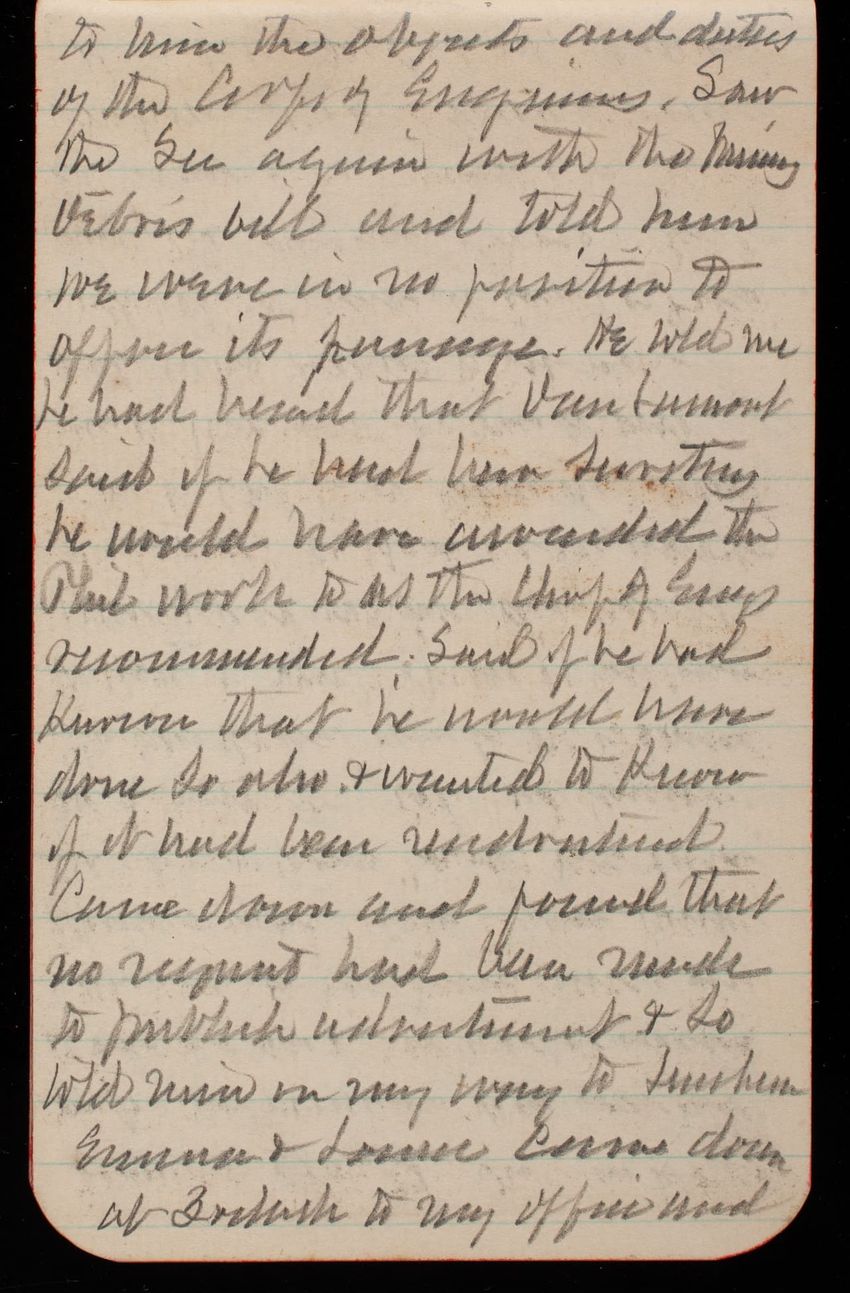 to him the objects and duties
of the Corps of Engineers. Saw
the Sec again with the Mining
Debris bill and told him
we were in no position to
oppose its passage. He told me
he had heard that Van
said if he had been Secretary
he would have awarded the
Phil work to as the Chief of Engrs
recommended. Said if he had
Known that he would have
done so also & wanted to Know
if it had been readvertised.
Came down and found that
no request had been made
to publish advertisement & so
told him on my way to luncheon
Emma & Lonnie came down
at 3 oclock to my office and